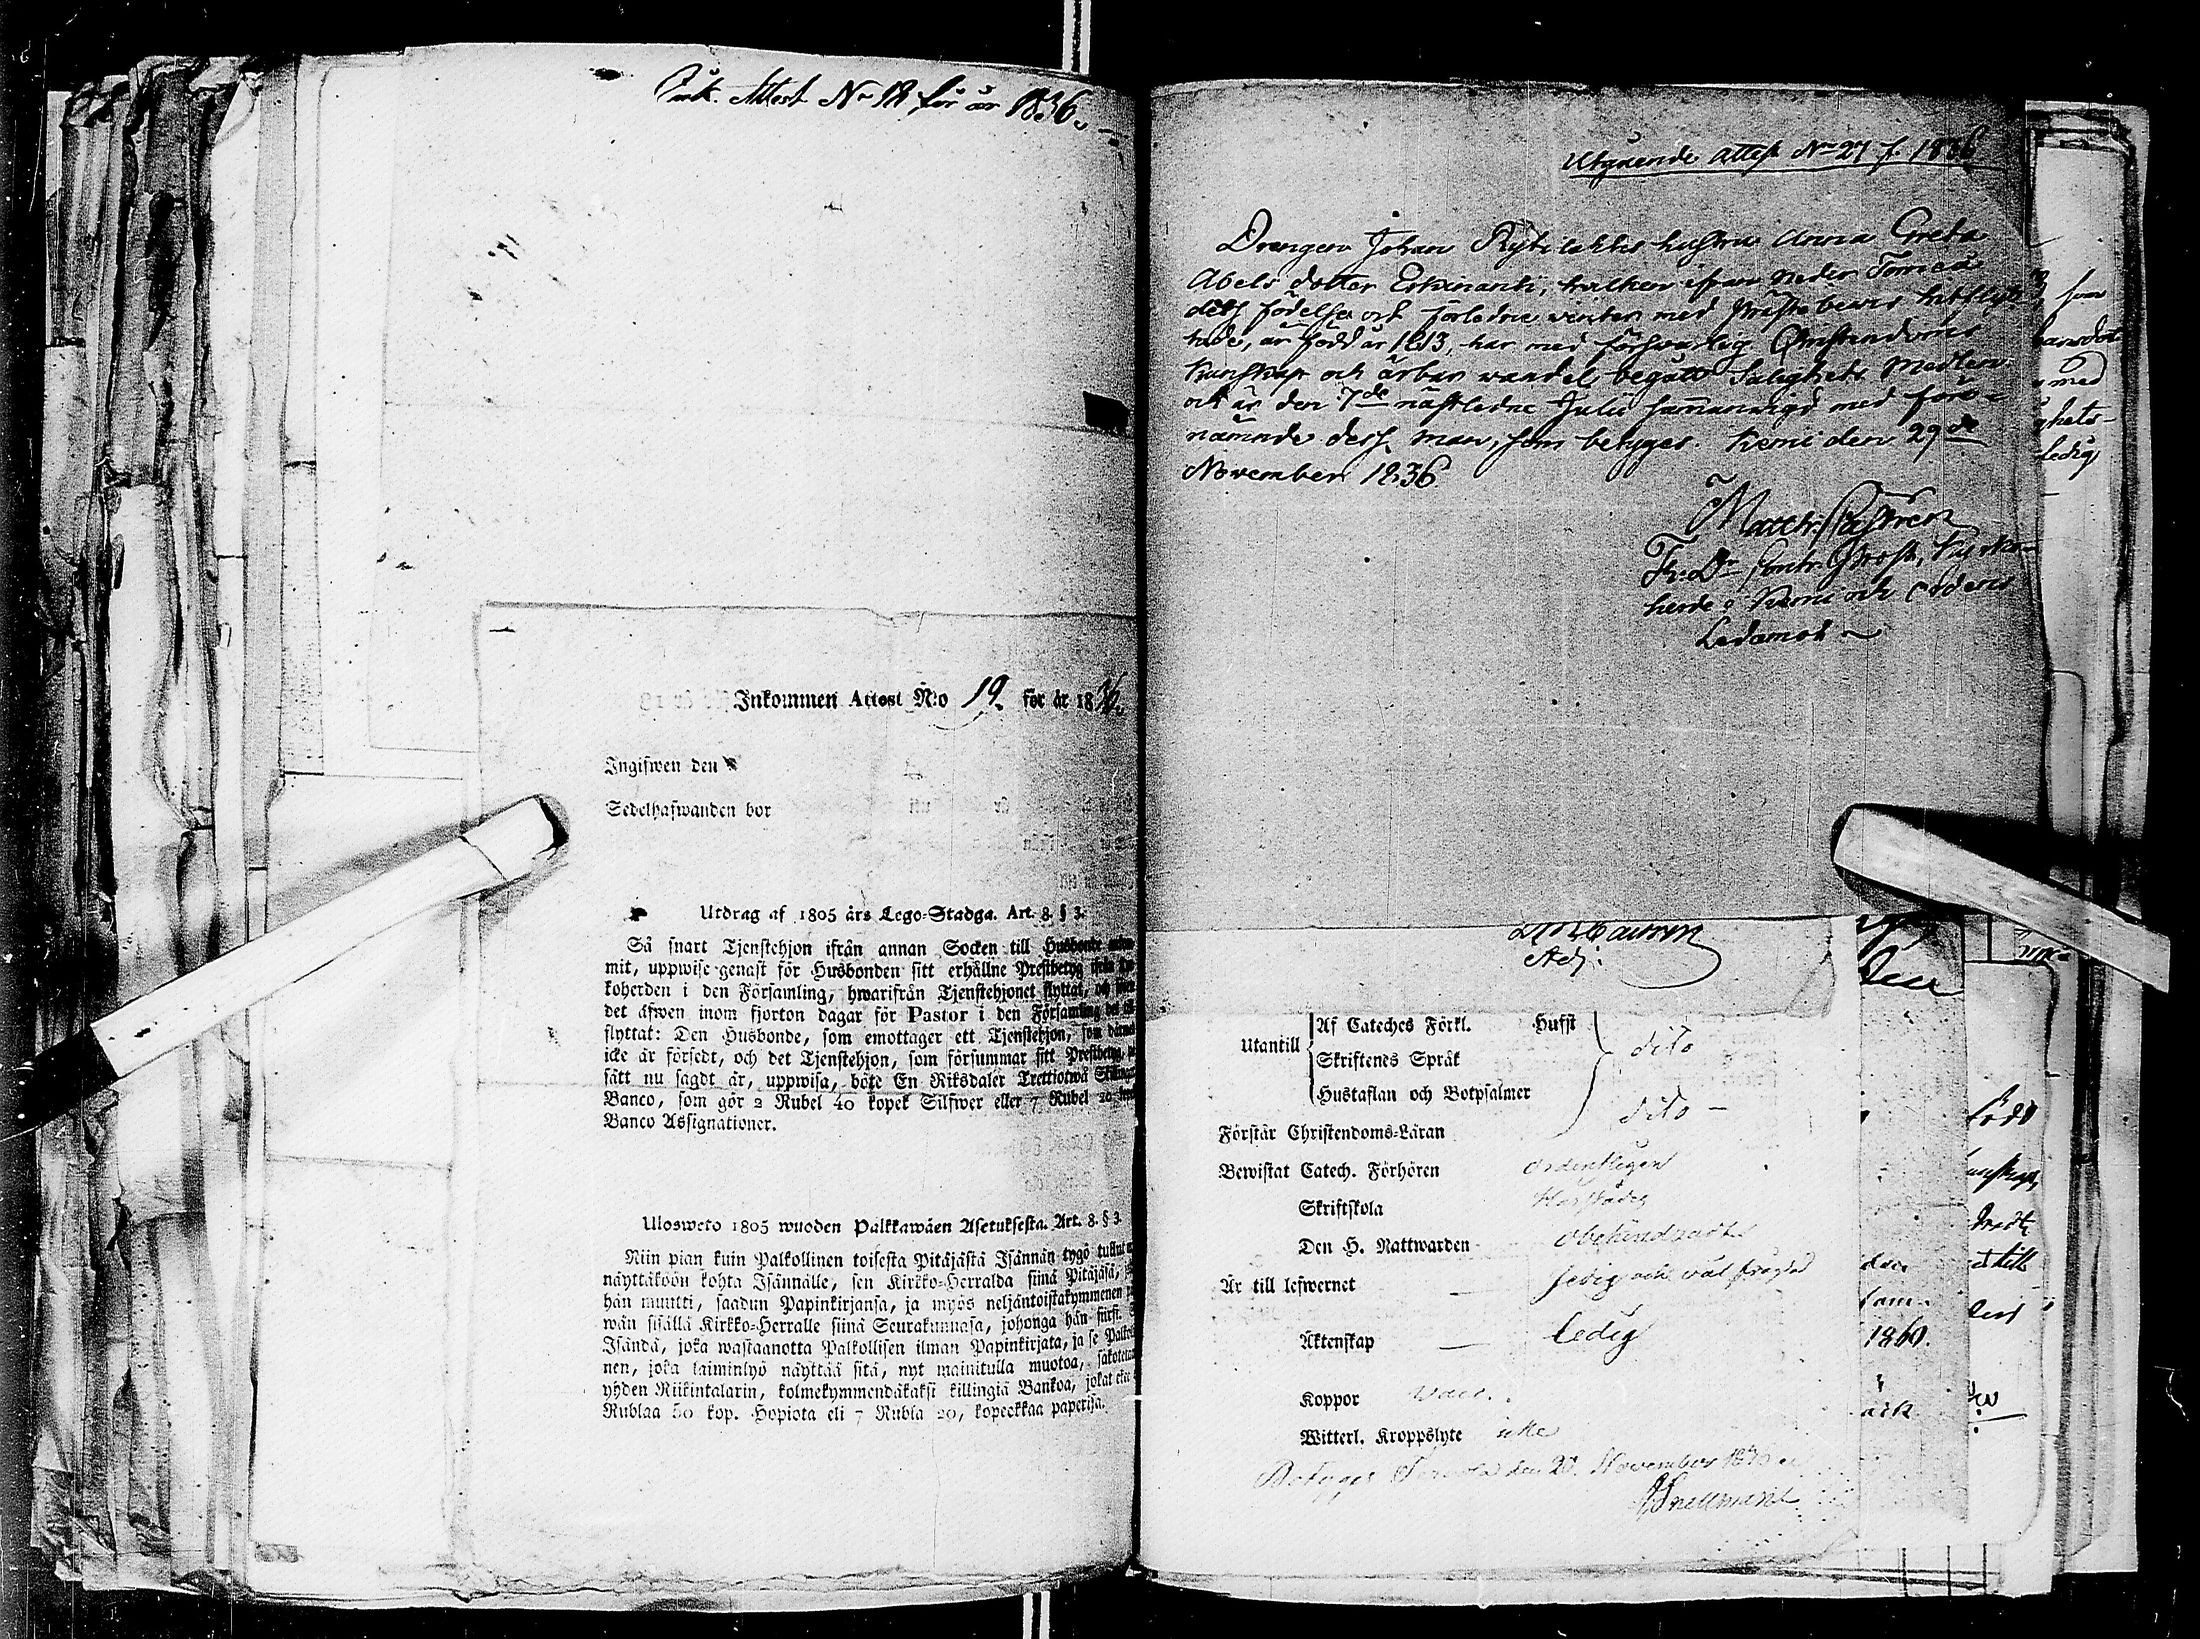 Ink. Attest No 18 för år 1836.
Inkommen Attest N:o 19. för år 1836.
Ingifwen den
Sedelhafwanden bor
Utdrag af 1805 års Lego-Stadga. Art. 8. § 3.
Så snart Tjenstehjon ifrån annan Socken till Husbonde
mit, uppwise genast för Husbonden sitt erhållne Prestbetyg ifrån
koherden i den Församling, hwarifrån Tjenstehjonet flyttat, och
det äfwen inom fjorton dagar för Pastor i den Församling det
flyttat: Den Husbonde, som emottager ett Tjenstehjon, som
icke är försedt, och det Tjenstehjon, som försummar sitt Prestbetyg,
sätt nu sagdt är, uppwisa, böte En Riksdaler Trettiotwå Skillingar
Banco, som gör 2 Rubel 40 kopek Silfwer eller 7 Rubel 20
Banco Assignationer.
Ulosweto 1805 wuoden Palkkawäen Asetuksesta. Art. 8. § 3.
Niin pian kuin Palkollinen toisesta Pitäjästä Isännän tygö tullut
näyttäköön kohta Isännälle, sen Kirkko-Herralda siinä Pitäjäsä,
hän muutti, saadun Papinkirjansa, ja myös neljäntoistakymmenen
wän sisällä Kirkko-Herralle siinä Seurakunnasa, johonga hän siirsi.
Isändä, joka wastaanotta Palkollisen ilman Papinkirjata, ja se
nen, joka laiminlyö näyttää sitä, nyt mainitulla muotoa,
yhden Riikintalarin, kolmekymmendäkaksi killingiä Bankoa, jokat
Rublaa 50 kop. Hopiota eli 7 Rubla 20, kopeekkaa paperisa.
Utgående attest No 27 f. 1836
Drengen Johan Rytilahtis hustru Anna Greta
Abels dotter Eskinanti, hvilken ifrån Neder Torneå
dess födelse ort förledne vinter med Prestebevis hitflyt
tade, är född år 1813, har med försvarlig Christendoms
kunskap och ärbar wandel begått Salighets Medlen
och är den 7de nästledne Julii sammanvigd med före-
nämnde dess man, som betyges. Kemi den 29de
November 1836.
Matth. Castrén
Th. Dr Contr. Prost, Kyrko-
herde i Kemi och Ordens
Ledamot
Adj:
Utantill
Af Cateches Förkl. Hufst
Skriftenes Språk dito
Hustaflan och Botpsalmer
dito
Förstår Christendoms-Läran
Bewistat Catech. Förhören ordentligen
Skriftskola
Den H. Nattwarden obehindradt
Är till lefwernet ledig och väl frägdad
Äktenskap ledig
Koppor
Witterl. Kroppslyte icke
Betyges Tervola den 20. November
Snellman
som
med
ghets-
Ledig
född
1860.